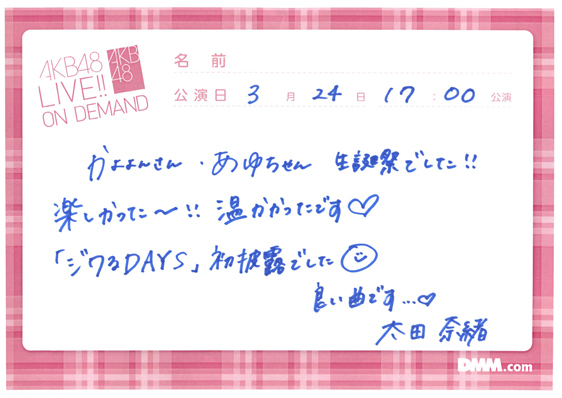 AKB48
LIVE!!
ON DEMAND
AKB
48
名 前
公演日 3 月 24 日 17 : 00 公演
かよよんさん・あゆちゃん 生誕祭でした!!
楽しかった〜!! 温かかったです♡
「ジワるDAYS」初披露でした☺
良い曲です…♡
太田 奈緒
DMM.com